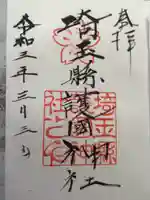 奉拝
埼玉縣護國神社
令和三年三月三日